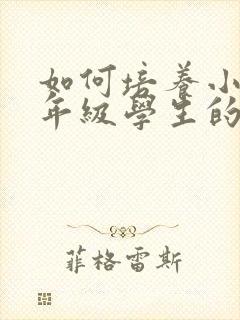 如何培養小
年級學生的
菲格雷斯